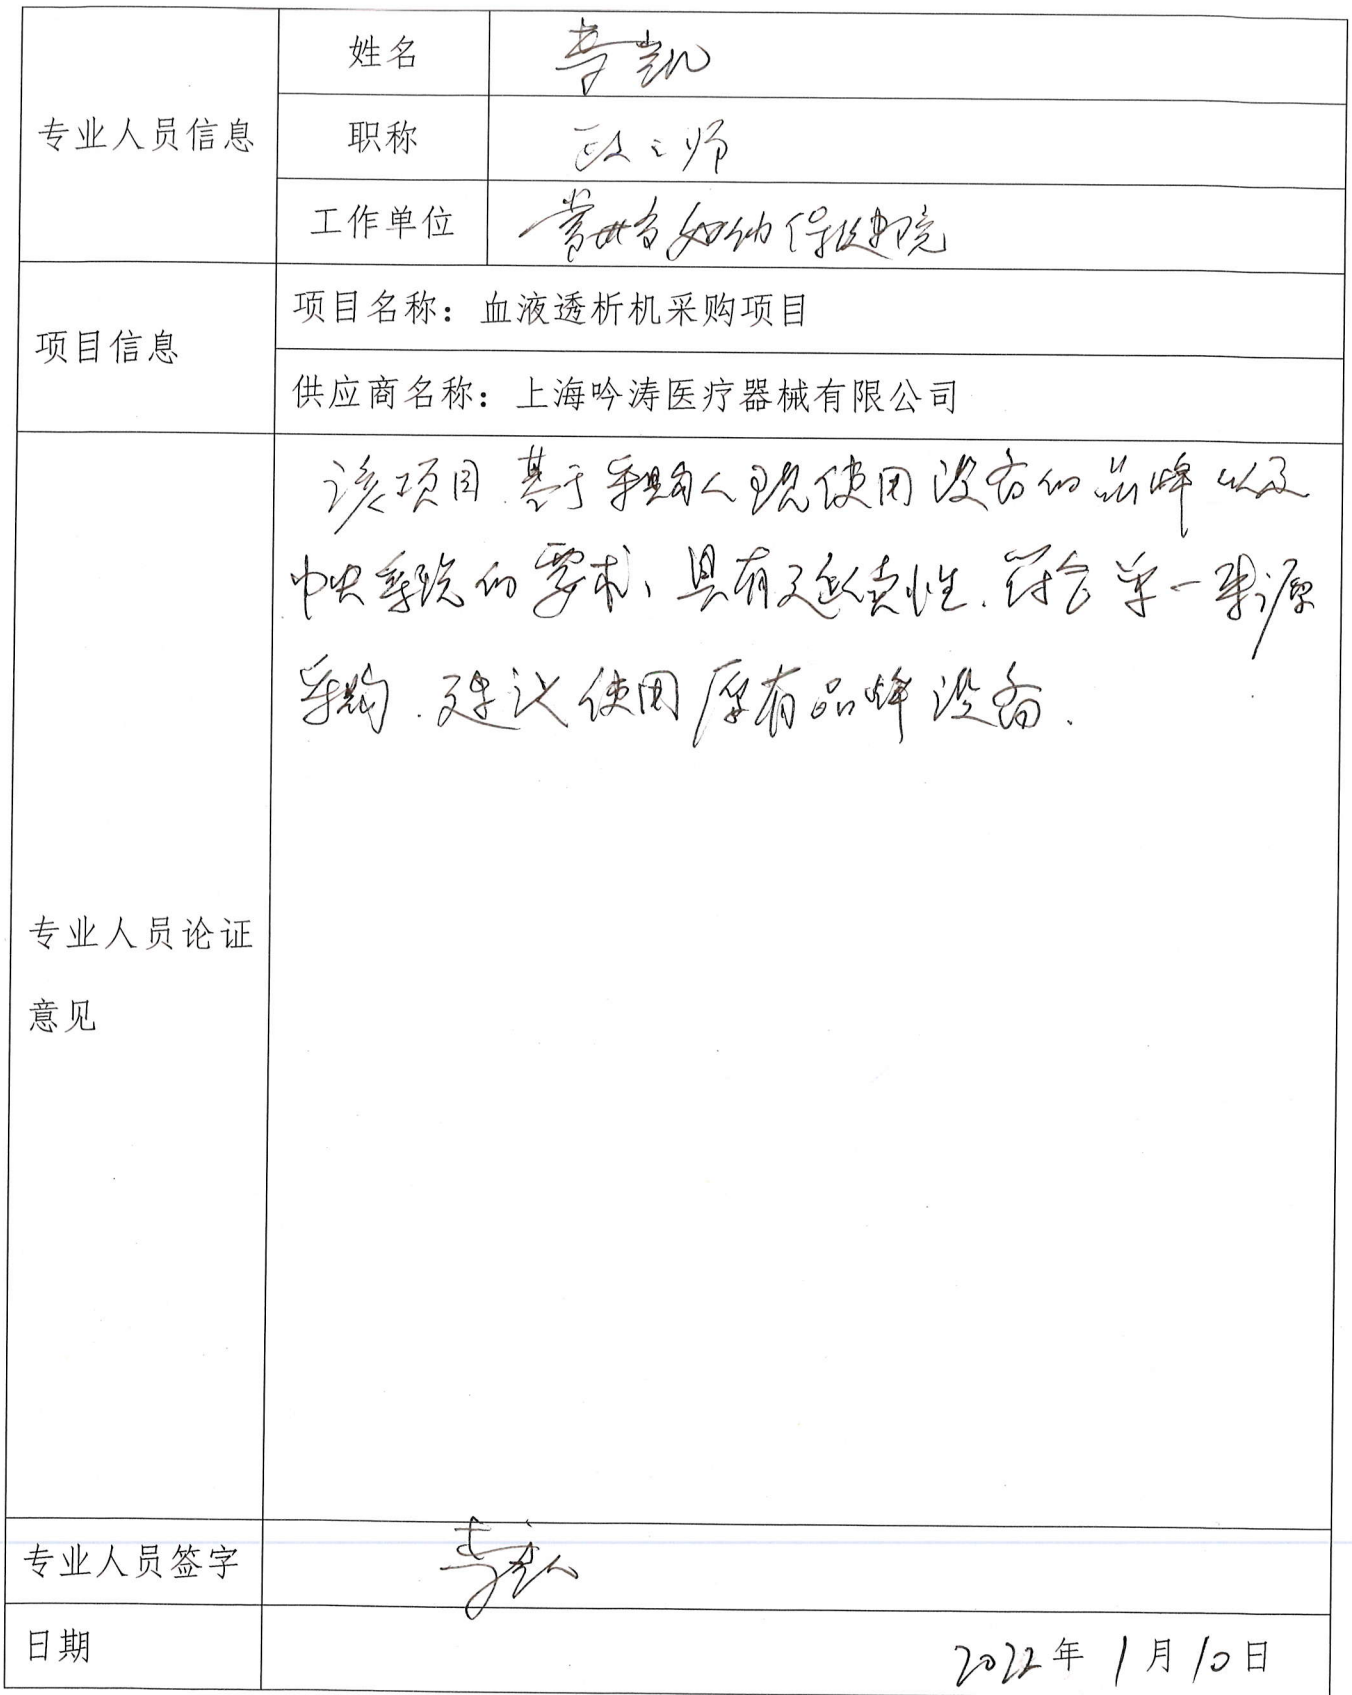 专业人员信息
姓名
李凯
职称
工作单位
妇幼保健院
项目信息
项目名称：血液透析机采购项目
供应商名称：上海吟涛医疗器械有限公司
专业人员论证
意见
该项目基于采购人现使用设备的品牌以及
中央系统的要求、具有延续性.符合单一来源
采购.建议使用原有品牌设备.
专业人员签字
李凯
日期
2022年1月10日